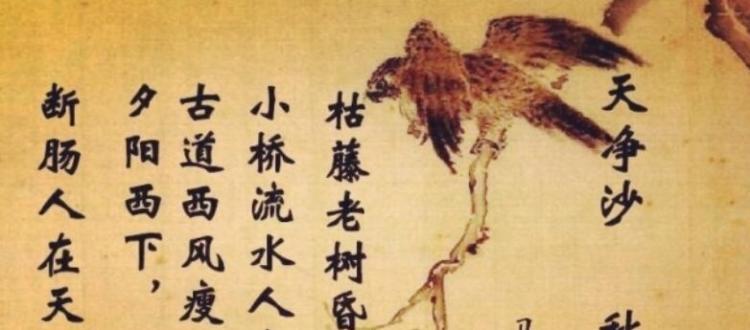 天争沙
枯藤老树昏
小桥流水人
古道西风瘦
夕阳西下，
断肠人在天